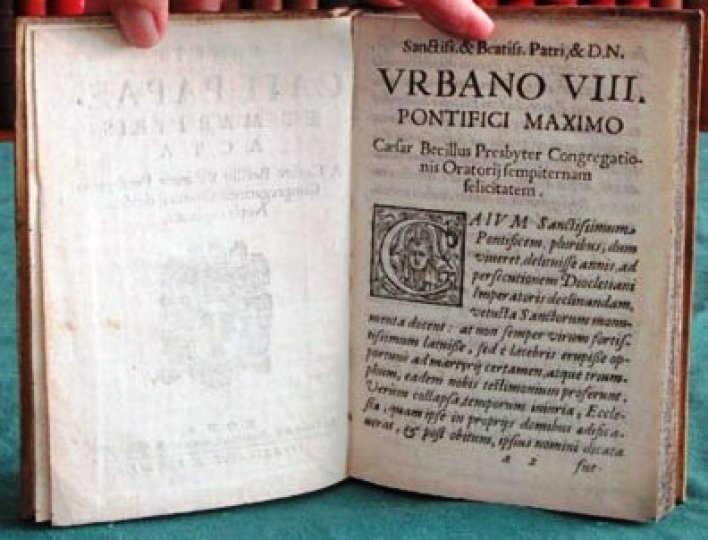 Sanctiſſ. & Beatiſſ. Patri, & D.N.
VRBANO VIII.
PONTIFICI MAXIMO
Cæſar Becillus Presbyter Congregatio-
nis Oratorij ſempiternam
felicitatem.
CAIVM Sanctiſsimum
Pontificem, pluribus, dum
viueret, delituiſſe annis, ad
perſecutionem Diocletiani
Imperatoris declinandam,
vetuſta Sanctorum monu-
menta docent: at non ſemper virum fortiſ-
ſimum latuiſſe, ſed è latebris erupiſſe op-
portunè ad martyrij certamen, atque trium-
phum, eadem nobis teſtimonium proferunt.
Verùm collapſa temporum iniuria, Eccle-
ſia, quam ipſe in proprijs domibus ædifica-
uerat, & poſt obitum, ipſius nomini dicata
a 2 fue